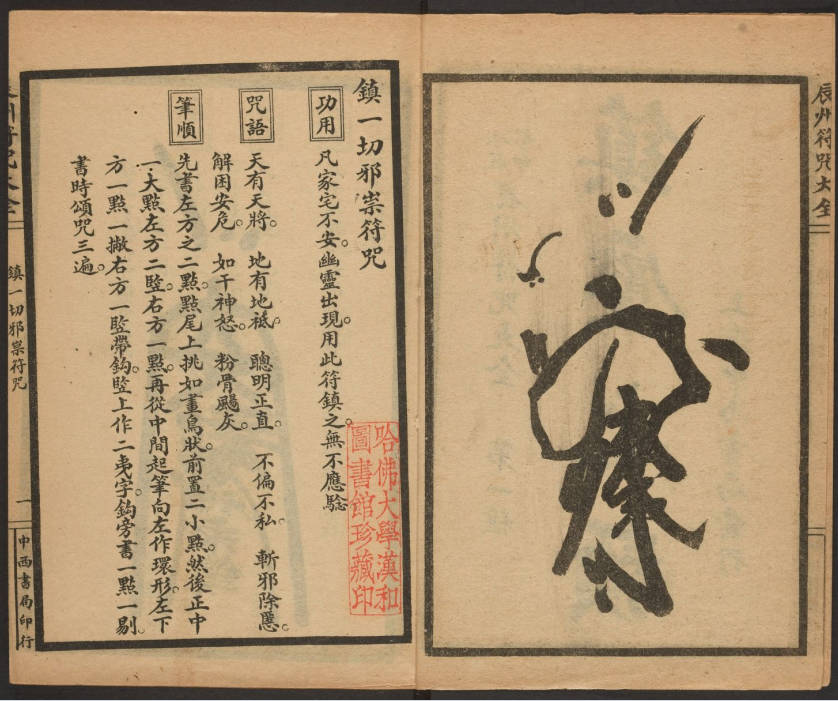 辰州符咒大全
鎮一切邪祟符咒
功用
凡家宅不安。幽靈出現。用此符鎮之。無不應驗
咒語
天有天將。 地有地祇。 聰明正直。 不偏不私。 斬邪除惡。
解困安危。 如干神怒。 粉骨颺灰。
筆順
先書左方之二點。點尾上挑如畫鳥狀。前置二小點。然後正中
一大點。左方二竪。右方一點。再從中間起筆向左作環形。左下
方一點一撇。右方一竪帶鈎。竪上作二夷字。鈎旁書一點一剔。
書時頌咒三遍。
哈佛大學漢和
圖書館珍藏印
辰州符咒大全
鎮一切邪祟符咒
一
中西書局印行